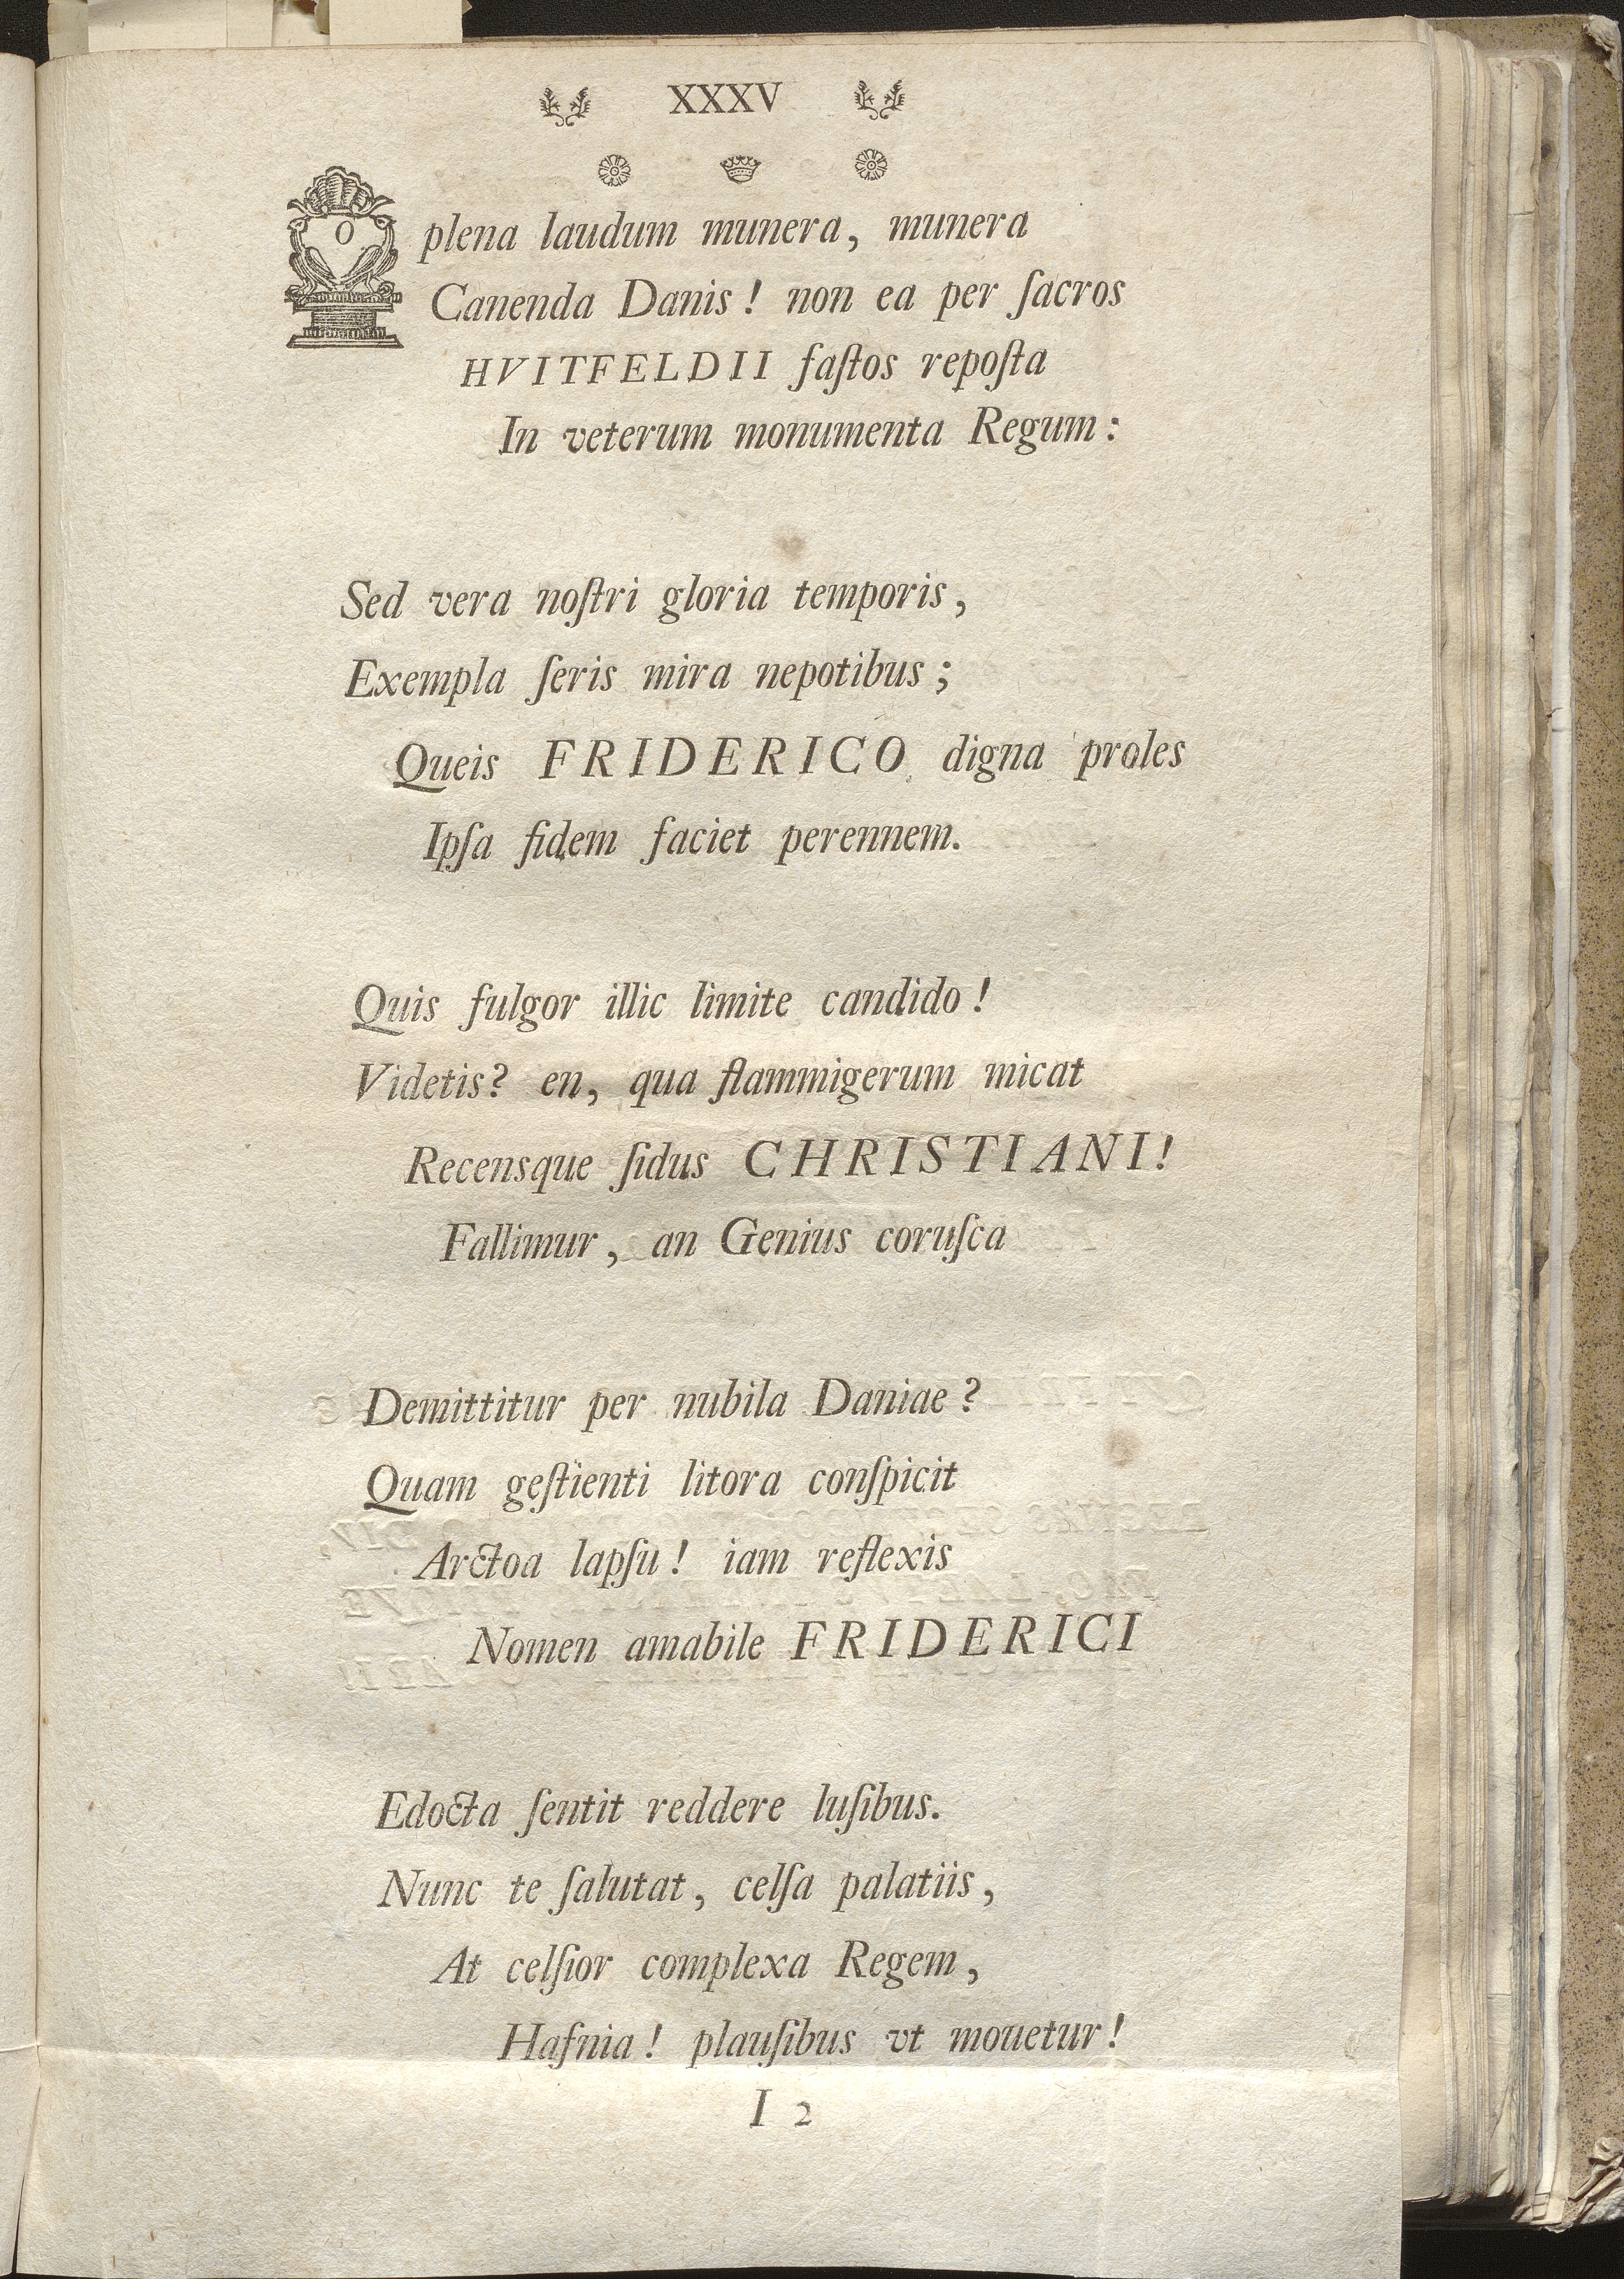 XXXV
O plena laudum munera, munera
Canenda Danis! non ea per ſacros
HVITFELDII faſtos repoſta
In veterum monumenta Regum:
Sed vera noſtri gloria temporis,
Exempla ſeris mira nepotibus;
Queis FRIDERICO digna proles
Ipſa fidem faciet perennem.
Quis fulgor illic limite candido!
Videtis? en, qua flammigerum micat
Recensque ſidus CHRISTIANI!
Fallimur, an Genius coruſca
Demittitur per nubila Daniae?
Quam geſtienti litora conſpicit
Arctoa lapſu! iam reflexis
Nomen amabile FRIDERICI
Edocta ſentit reddere luſibus.
Nunc te ſalutat, celſa palatiis,
At celſior complexa Regem,
Hafnia! plauſibus vt mouetur!
I 2